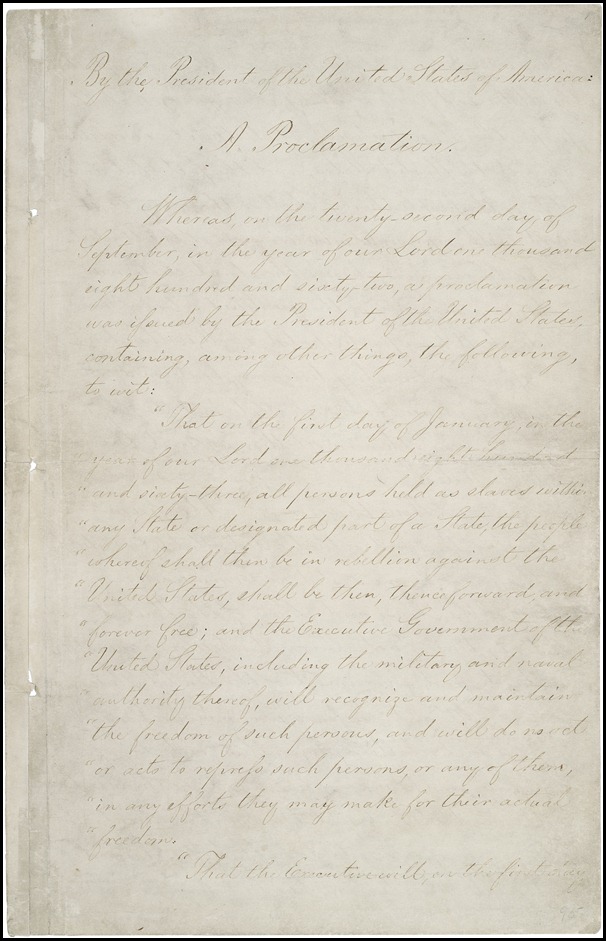 By the President of the United States of America:
A Proclamation.
Whereas, on the twenty-second day of
September, in the year of our Lord one thousand
eight hundred and sixty-two, a proclamation
was issued by the President of the United States,
containing, among other things, the following,
to wit:
"That on the first day of January, in the
"year of our Lord one thousand eight hundred
"and sixty-three, all persons held as slaves within
"any State or designated part of a State, the people
"whereof shall then be in rebellion against the
"United States, shall be then, thenceforward, and
"forever free; and the Executive Government of the
"United States, including the military and naval
"authority thereof, will recognize and maintain
"the freedom of such persons, and will do no act
"or acts to repress such persons, or any of them,
"in any efforts they may make for their actual
"freedom.
"That the Executive will, on the first day